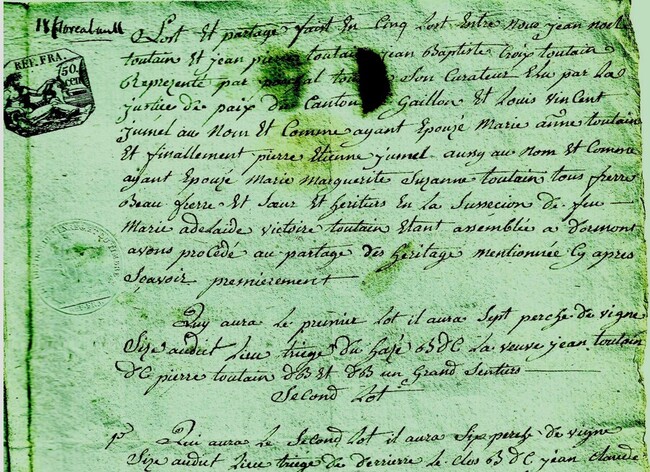 18 floreal
REP. FRA.
50.
cen
Lost Et partage fait En Cinq Lost Entre Nous jean noel
toutain Et jean pierre toutain jean Baptiste troix toutain
Representé par tou Son Curateur Elu par La
justice de paix du Canton Gaillon Et Louis VinCent
Jumel au Nom Et Comme ayant Epouzé Marie anne toutain
Et finallement pierre Etienne jumel aussy au nom Et Comme
ayant Epouzé Marie Marguerite Suzanne toutain tous frerre
Beau frerre Et Sœur Et heritiers En La Sussecion de feu
Marie adelaide victoire toutain Etant assemblée a Dormons
avons procédé au partage des heritage mentionnée Cy apres
Scavoir premierement
Quy aura Le premier Lot il aura Sept perche de vigne
Size audit Lieu triege du hazé 63 dC La veuve jean toutain
dC pierre toutain d63 Et d63 un Grand Sentiers
Second Lot
Qui aura Le Second Lot il aura Six perche de vigne
Size audit Lieu triege de derriere Le clos 63 dC jean Claude